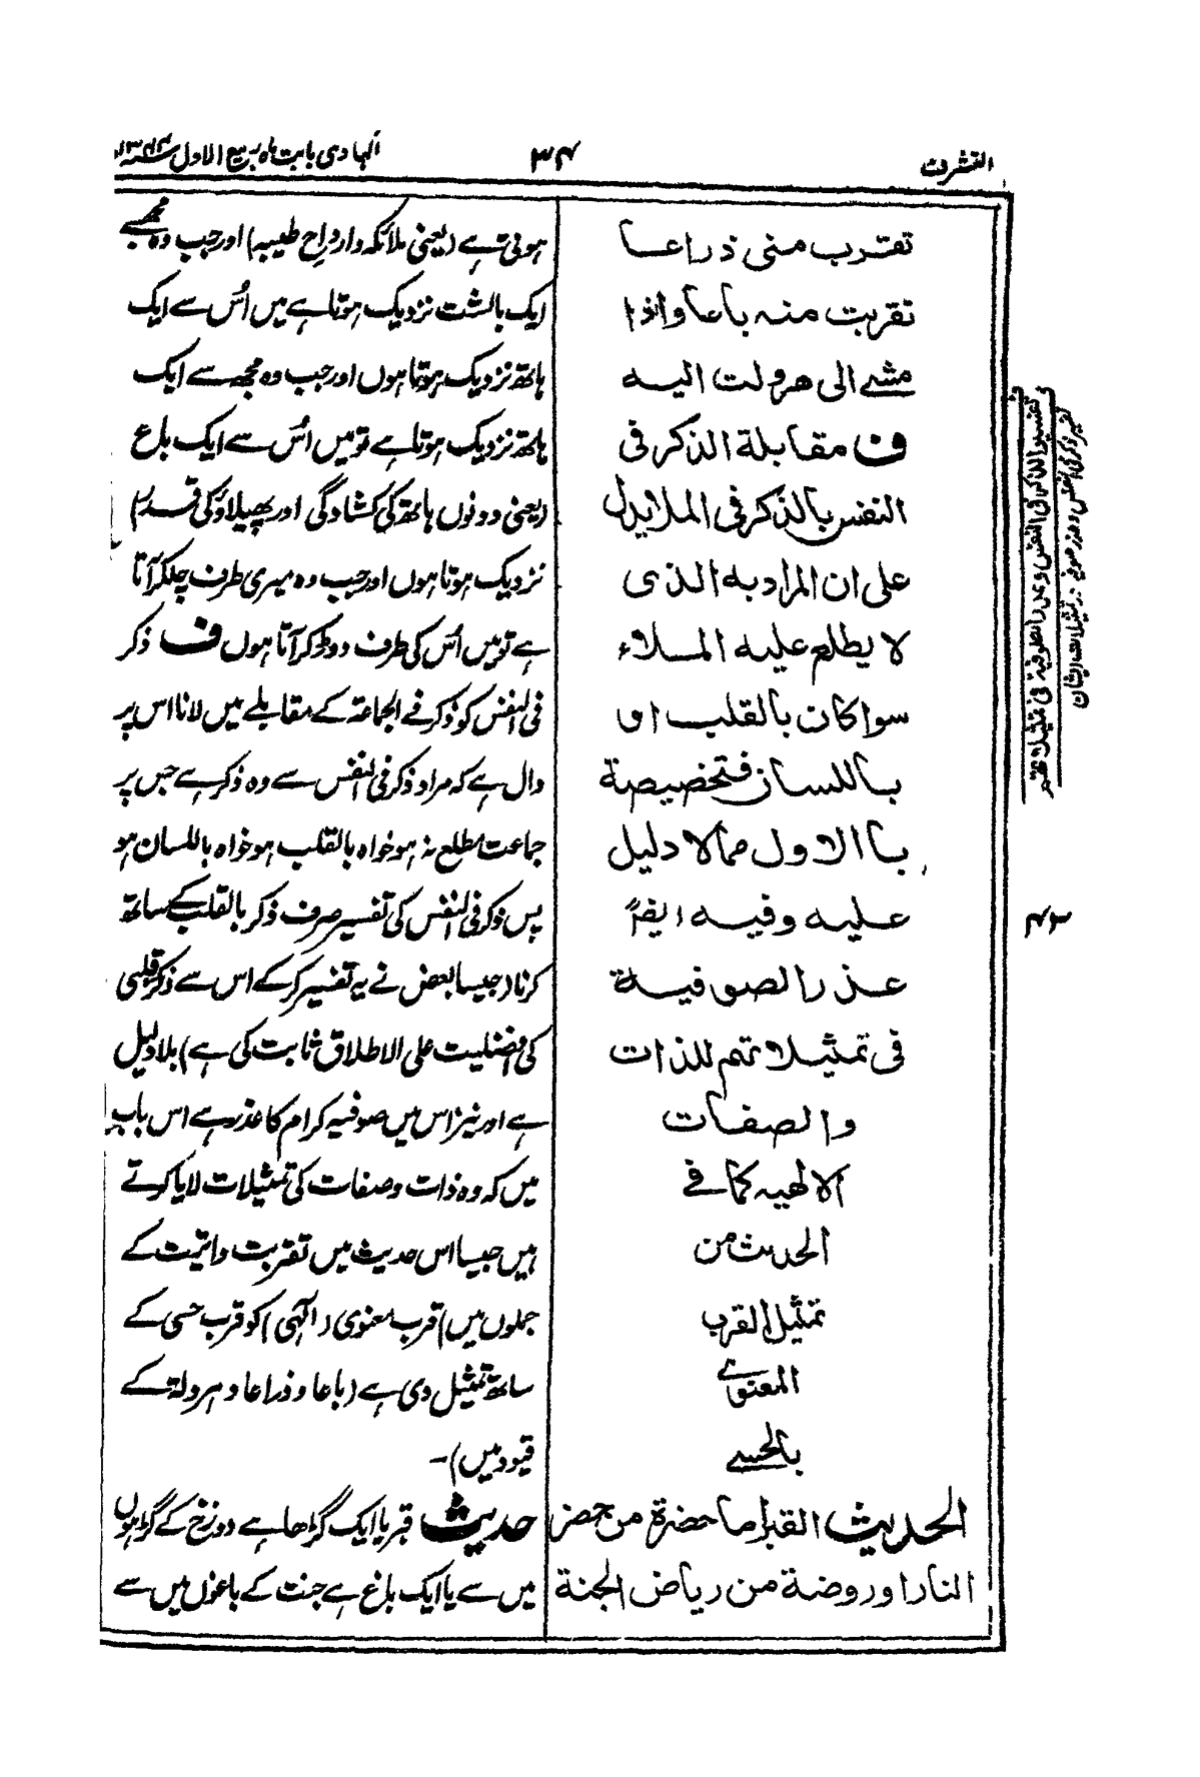 التشرف
۳۴
الہادی بابت ماہ ربیع الاول سنہ ۱۳۴۴
تقرب منی ذراعا
تقربت منہ باعا واذا
مشے الی ھرولت الیہ
ف مقابلۃ الذکر فی
النفس بالذکر فی الملا یدل
علی ان المراد بہ الذی
لا یطلع علیہ الملاء
سوا کان بالقلب او
باللسان فتخصیصۃ
باالاول ممالا دلیل
علیہ وفیہ ایضًا
عذر الصوفیۃ
فی تمثیلاتھم للذات
والصفات
الالٰھیہ کما فے
الحدیث من
تمثیل القرب
المعنوے
بالحسے
الحدیث القبر اما حضرۃ من حضر
النار اوروضۃ من ریاض الجنۃ
ہوتی ہے (یعنی ملائکہ وارواح طیبہ) اور جب وہ مجھ سے
ایک بالشت نزدیک ہوتا ہے میں اُس سے ایک
ہاتھ نزدیک ہوتا ہوں اور جب وہ مجھ سے ایک
ہاتھ نزدیک ہوتا ہے تو میں اُس سے ایک باع
(یعنی دونوں ہاتھ کی کشادگی اور پھیلاؤ کی قدر)
نزدیک ہوتا ہوں اور جب وہ میری طرف چلکر آتا
ہے تو میں اُس کی طرف دوڑ کر آتا ہوں ف ذکر
فی النفس کو ذکر فے الجماعۃ کے مقابلے میں لانا اس پر
دال ہے کہ مراد ذکر فی النفس سے وہ ذکر ہے جس پر
جماعت مطلع نہ ہو خواہ بالقلب ہو خواہ باللسان ہو
پس ذکر فی النفس کی تفسیر صرف ذکر بالقلب کے ساتھ
کرنا (جیسا بعض نے یہ تفسیر کر کے اس سے ذکر قلبی
کی افضلیت علی الاطلاق ثابت کی ہے) بلا دلیل
ہے اور نیز اس میں صوفیہ کرام کا عذر ہے اس باب
میں کہ وہ ذات وصفات کی تمثیلات لایا کرتے
ہیں جیسا اس حدیث میں تقربت واتیت کے
جملوں میں) قرب معنوی (الٰہی) کو قرب حسی کے
ساتھ تمثیل دی ہے (باعا وذراعا وہرولۃ کے
قیود میں)۔
حدیث قبر یا ایک گڑھا ہے دوزخ کے گڑہوں
میں سے یا ایک باغ ہے جنت کے باغوں میں سے